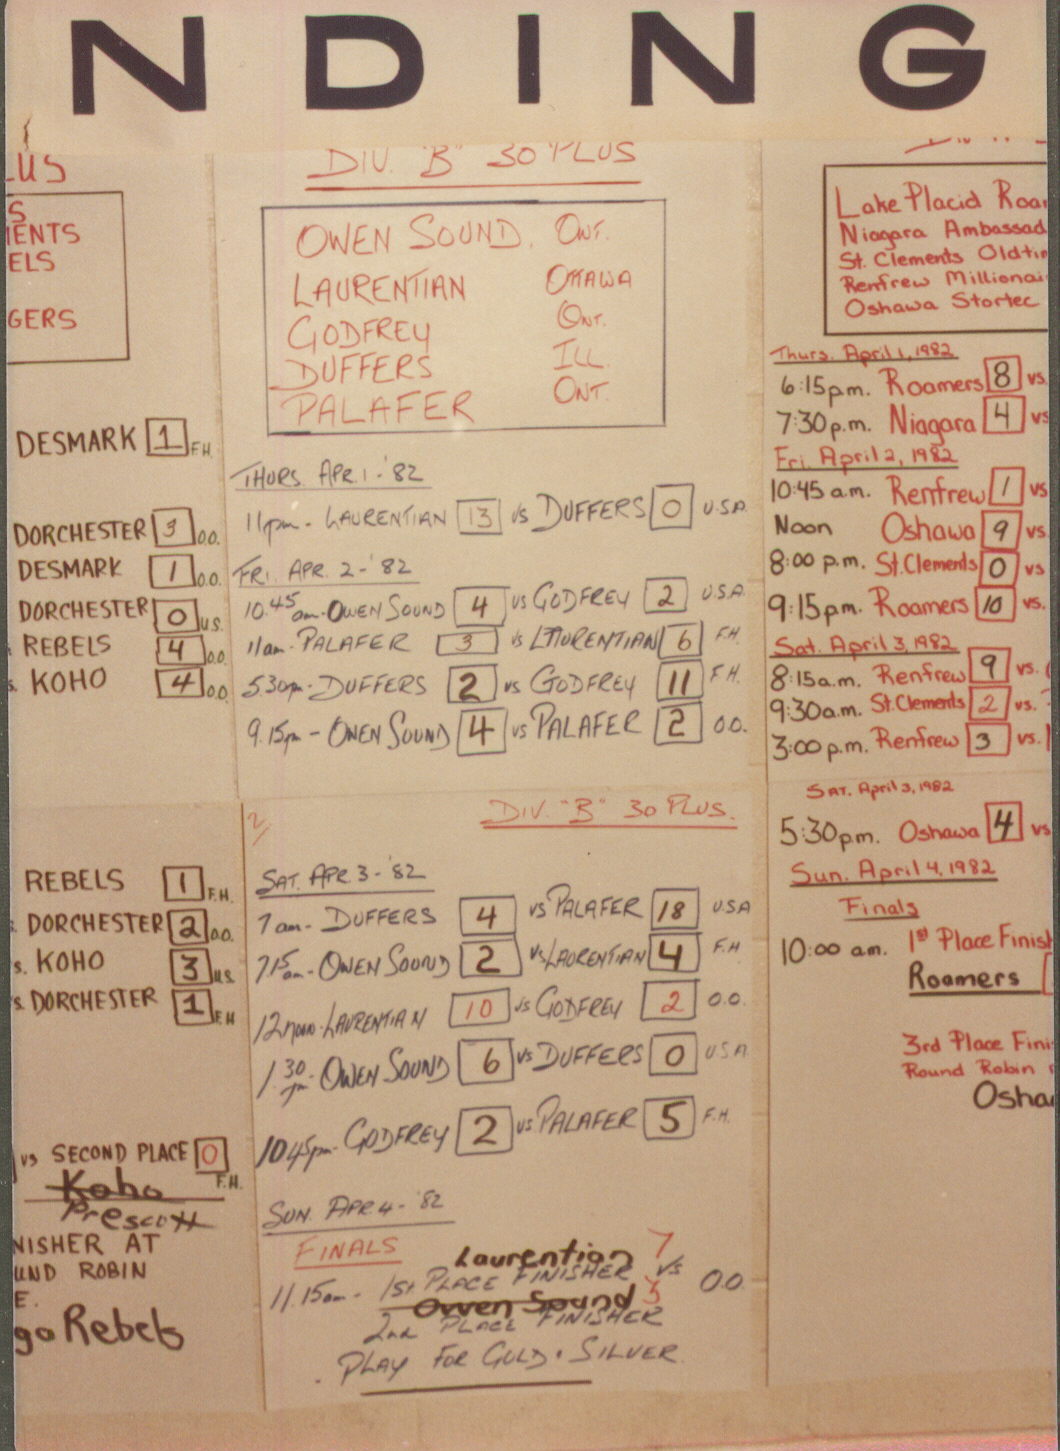 NDING
LUS
S
IENTS
ELS
GERS
DESMARK 1 F.H.
DORCHESTER 3 O.O.
DESMARK 1 O.O.
DORCHESTER 0 U.S.
REBELS 4 O.O.
s. KOHO 4 O.O.
REBELS 1 F.H.
s. DORCHESTER 2 O.O.
s. KOHO 3 U.S.
s. DORCHESTER 1 F.H.
vs SECOND PLACE 0
F.H.
Koho
Prescott
NISHER AT
UND ROBIN
E.
go Rebels
DIV. "B" 30 PLUS
OWEN SOUND. ONT.
LAURENTIAN OTTAWA
GODFREY ONT.
DUFFERS ILL.
PALAFER ONT.
THURS. APR. 1 - '82
11pm - LAURENTIAN 13 vs DUFFERS 0 U.S.A.
FRI. APR. 2 - '82
10:45 am - OWEN SOUND 4 vs GODFREY 2 U.S.A.
11am - PALAFER 3 vs LAURENTIAN 6 F.H.
5:30pm - DUFFERS 2 vs GODFREY 11 F.H.
9:15pm - OWEN SOUND 4 vs PALAFER 2 O.O.
2/
DIV. "B" 30 PLUS.
SAT. APR. 3 - '82
7am - DUFFERS 4 vs PALAFER 18 U.S.A
7:15 am - OWEN SOUND 2 vs LAURENTIAN 4 F.H
12 noon - LAURENTIAN 10 vs GODFREY 2 O.O.
1:30 pm - OWEN SOUND 6 vs DUFFERS 0 U.S.A.
10:45pm - GODFREY 2 vs PALAFER 5 F.H.
SUN. APR. 4 - '82
FINALS
Laurention 7
11:15am - 1st PLACE FINISHER vs O.O.
Owen Sound 3
2nd PLACE FINISHER
PLAY FOR GOLD • SILVER.
Lake Placid Roam
Niagara Ambassad
St. Clements Oldtim
Renfrew Millionai
Oshawa Stortec
Thurs. April 1, 1982
6:15pm. Roamers 8 vs
7:30 p.m. Niagara 4 vs
Fri. April 2, 1982
10:45 a.m. Renfrew 1 vs
Noon Oshawa 9 vs.
8:00 p.m. St. Clements 0 vs
9:15pm. Roamers 10 vs.
Sat. April 3, 1982
8:15a.m. Renfrew 9 vs.
9:30a.m. St. Clements 2 vs.
3:00 p.m. Renfrew 3 vs.
SAT. April 3, 1982
5:30p.m. Oshawa 4 vs
Sun. April 4, 1982
Finals
10:00 am. 1st Place Finish
Roamers
3rd Place Fini
Round Robin
Osha